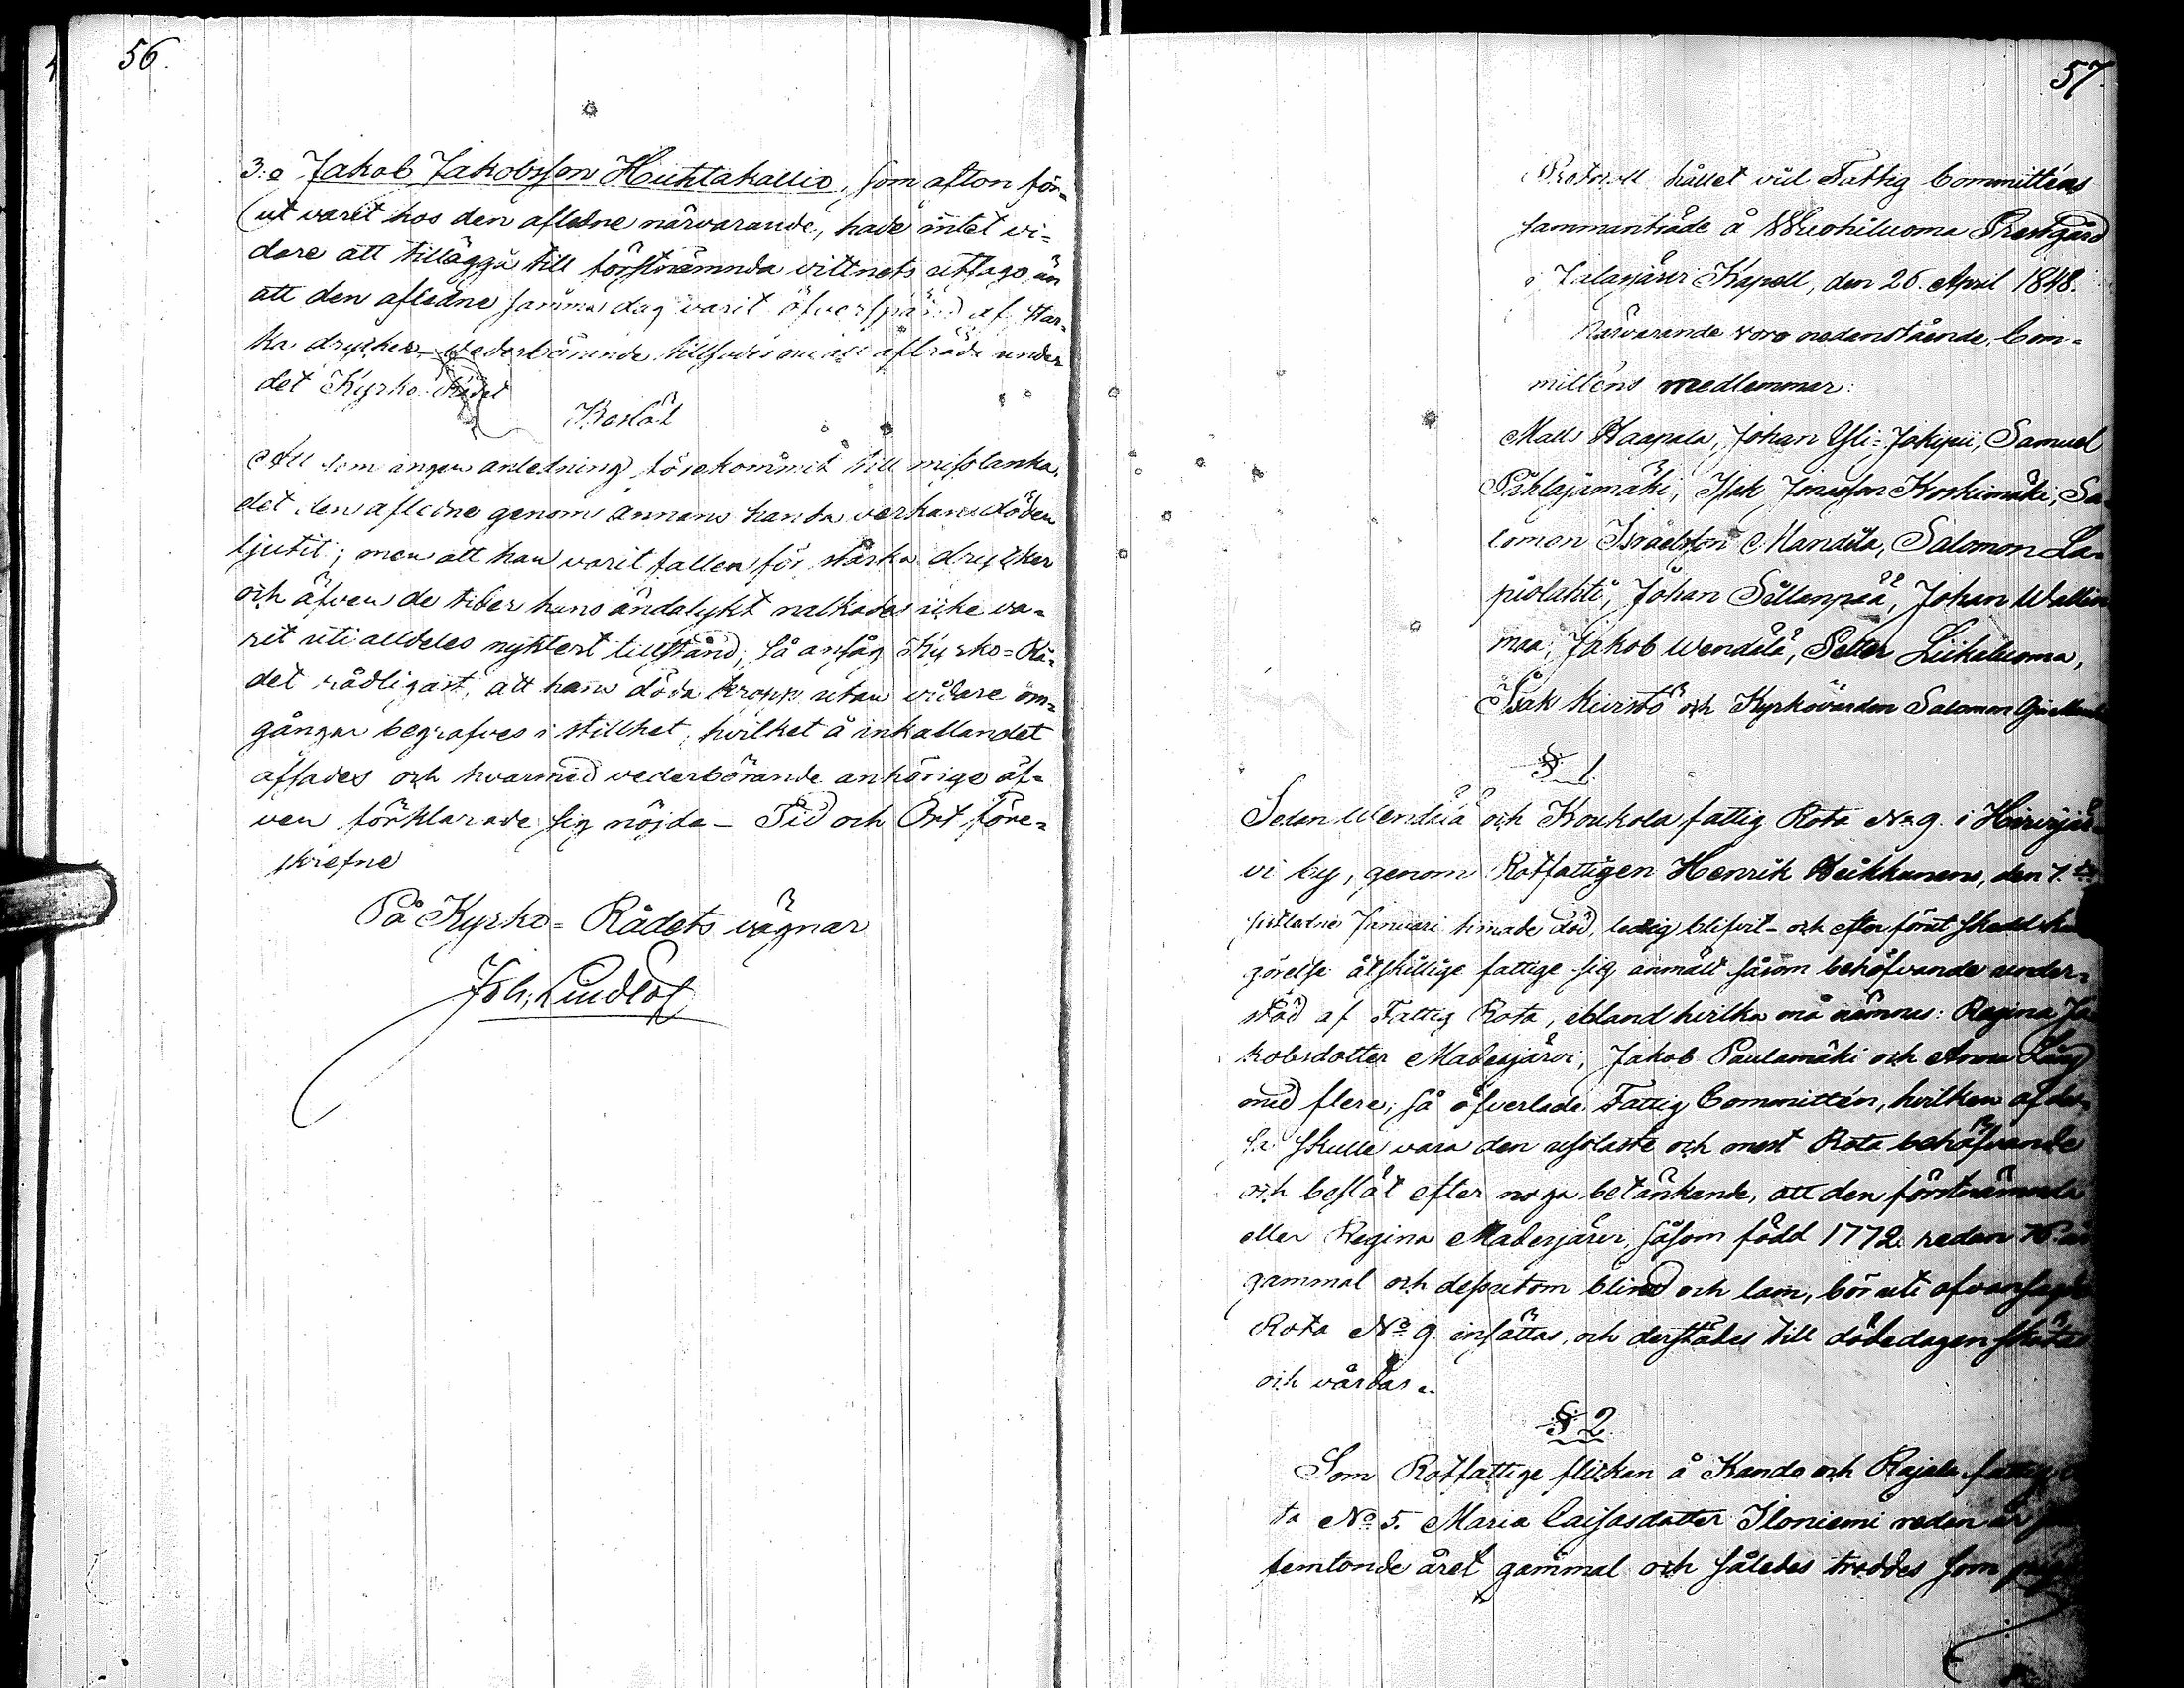 56.
3:o Jakob Jakobsson Huhtakallio, som afton för=
ut varit hos den aflidne närvarande, hade intet vi=
dare att tillägga till förstnämnda vittnets utsago, än
att den aflidne samma dag varit öfver af star=
ka drycker – vederbörande tillsades nu att afträda under
det Kyrko Rådet
Beslöt
Att som ingen anledning förekommit till misstanka,
det den aflidne genom annans hand verkan döden
ljutit; men att han varit fallen för starka drycker
och äfven de tider hans ändalykt nalkades icke va=
rit uti alldeles nyktert tillstånd; så ansåg Kyrko=Rå=
det rådligast, att hans döda kropp utan vidare om=
gångar begrafves i stillhet, hvilket å inkallandet
afsades och hvarmed vederbörande anhörige äf=
ven förklarade sig nöjda – Tid och Ort före=
skrefne
På Kyrko=Rådets vägnar
Joh: Lindlöf
57.
Protocoll hållet vid Fattig Committéns
sammanträde å Wuohiluoma Prestgård
i Jalasjärvi Kapell, den 26. April 1848.
Närvarande voro nedanstående Com=
mitténs medlemmar:
Matts Haapala, Johan Yli=Jokipii, Samuel
Pihlajamäki, Isak Jonasson Koskimäki, Sa=
lomon Israelsson Mandila, Salomon La=
piolahti, Johan Sillanpää, Johan Wallin
maa, Jakob Wendälä, Petter Liikaluoma,
Isak Kivistö och Kyrkovärden Salomon
§ 1.
Sedan Wendälä och Koukola fattig Rota No 9. i Hirvijär=
vi by, genom Rotfattigen Henrik Heikkunens, den 7.de
sistledne Januari timade död, ledig blifvit – och efter förut skedd
görelse åtskillige fattige sig anmält såsom behöfvande under=
stöd af Fattig Rota, ibland hvilka må nämnas: Regina Ja
kobsdotter Madesjärvi, Jakob Paulamäki och Anna Lång
med flere; så öfverlade Fattig Committén, hvilken af des=
sa skulle vara den uslaste och mest Rota behöfvande
och beslöt efter noga betänkande, att den förstnämnda
eller Regina Madesjärvi, såsom född 1772 redan 76 år
gammal och dessutom blind och lam, bör uti ofvansagde
Rota No 9. insättas, och derstädes till dödedagen skötas
och vårdas.
§ 2.
Som Rotfattige flickan å Kando och Rajala fattig
ta No 5. Maria Caisasdotter Iloniemi redan är
femtonde året gammal och således troddes som